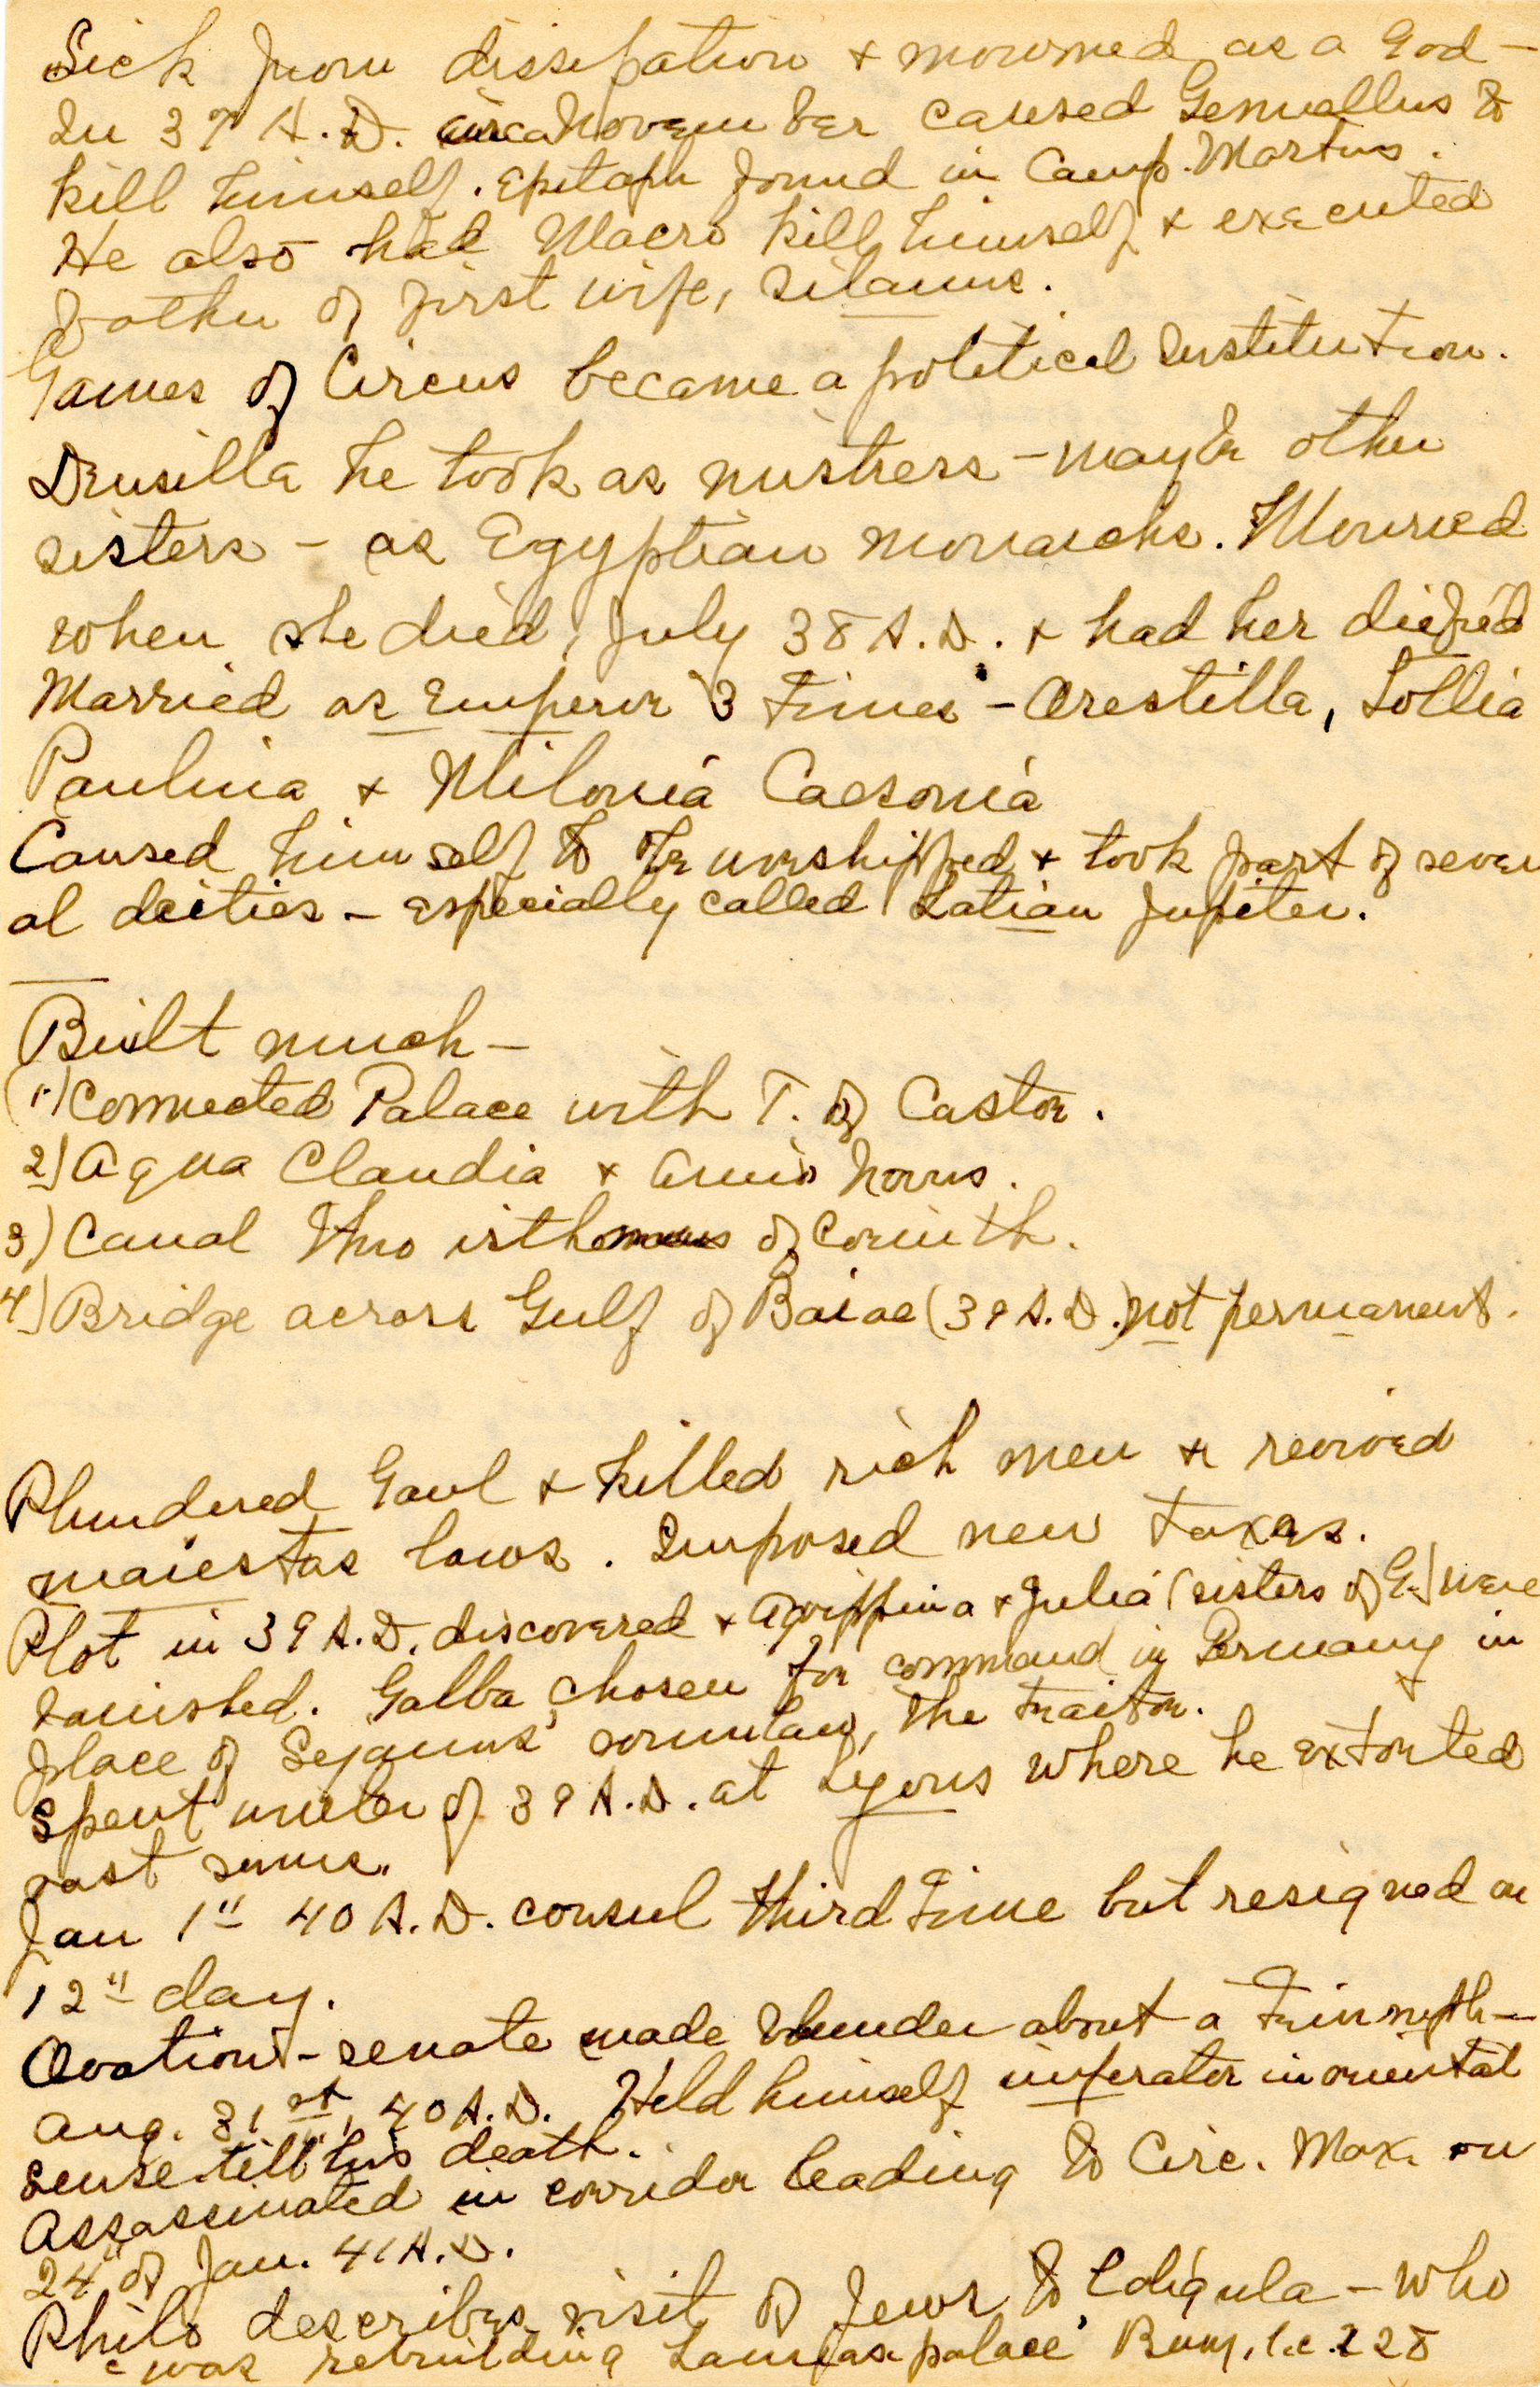 Sick from dissipation + mourned as a God —
In 37 A.D. circa November caused Gemellus to
kill himself. Epitaph found in Camp. Martius.
He also had Macro kill himself + executed
father of first wife, Silanus.
Games of Circus became a political institution.
Drusilla he took as mistress – maybe other
sisters – as Egyptian monarchs. Mourned
when she died, July 38 A.D. + had her deified
Married as Emperor 3 times – Orestilla, Lollia
Paulina + Milonia Caesonia
Caused himself to be worshipped + took part of sever
al deities – especially called Latian Jupiter.
Built much –
(1.) Connected Palace with T. of Castor.
2) Aqua Claudia + Anio Novus.
3) Canal thro isthmus of Corinth.
4) Bridge across Gulf of Baiae (39 A.D.) not permanent.
Plundered Gaul + killed rich men + revived
maiestas laws. Imposed new taxes.
Plot in 39 A.D. discovered + Agrippina + Julia (sisters of G.) were
banished. Galba chosen for command in Germany in
place of Sejanus' soninlaw, the traitor.
Spent winter of 39 A.D. at Lyons where he extorted
vast sums.
Jan 1" 40 A.D. consul third time but resigned on
12" day.
Ovation – senate made blunder about a triumph –
Aug. 31st, 40 A.D. Held himself imperator in oriental
sense till his death.
Assassinated in corridor leading to Circ. Max. on
24" of Jan. 41 A.D.
Philo describes visit of Jews to Caligula – who
was rebuilding Lamias palace Bury, l.c. 228